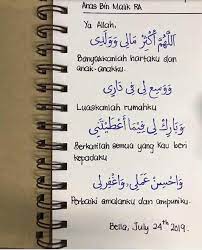 Anas Bin Malik RA
Ya Allah,
اَللّٰهُمَّ اَكْثِرْ مَالِى وَوَلَدِى
Banyakkanlah hartaku dan
anak-anakku.
وَوَسِعْ لِى فِى دَارِى
Luaskanlah rumahku
وَبَارِكْ لِى فِيْمَا اَعْطَيْتَنِى
Berkatilah semua yang Kau beri
kepadaku
وَاحْسِنْ عَمَلِى وَاغْفِرْلِى
Perbaiki amalanku dan ampuniku.
Bella, July 24th 2019.